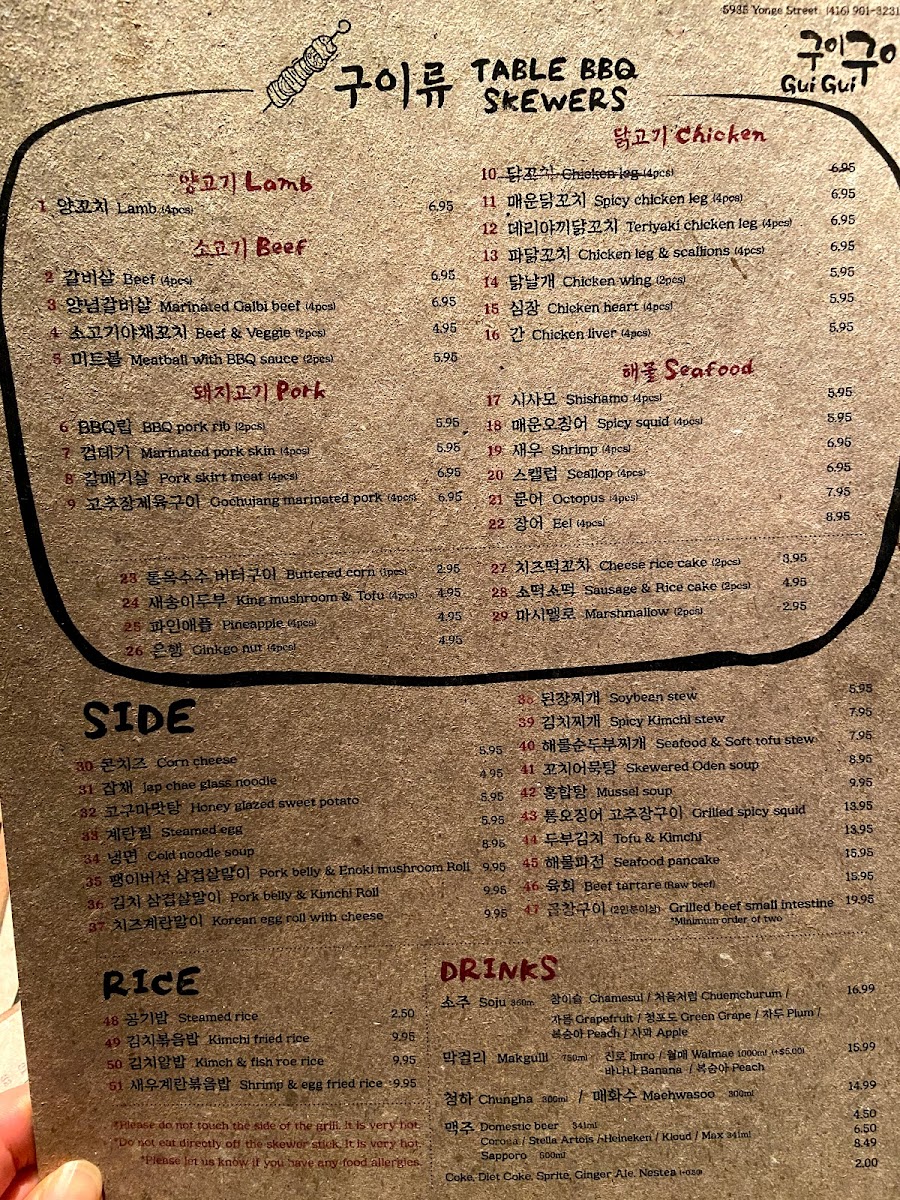 5985 Yonge Street (416) 901-3231
구이구이
Gui Gui
구이류 TABLE BBQ SKEWERS
양고기 Lamb
1 양꼬치 Lamb (4pcs) 6.95
소고기 Beef
2 갈비살 Beef (4pcs) 6.95
3 양념갈비살 Marinated Galbi beef (4pcs) 6.95
4 소고기야채꼬치 Beef & Veggie (2pcs) 4.95
5 미트볼 Meatball with BBQ sauce (2pcs) 5.95
돼지고기 Pork
6 BBQ립 BBQ pork rib (2pcs) 5.95
7 껍데기 Marinated pork skin (4pcs) 5.95
8 갈매기살 Pork skirt meat (4pcs) 6.95
9 고추장제육구이 Gochujang marinated pork (4pcs) 6.95
닭고기 Chicken
10 닭꼬치 Chicken leg (4pcs) 6.95
11 매운닭꼬치 Spicy chicken leg (4pcs) 6.95
12 데리야끼닭꼬치 Teriyaki chicken leg (4pcs) 6.95
13 파닭꼬치 Chicken leg & scallions (4pcs) 6.95
14 닭날개 Chicken wing (2pcs) 5.95
15 심장 Chicken heart (4pcs) 5.95
16 간 Chicken liver (4pcs) 5.95
해물 Seafood
17 시사모 Shishamo (4pcs) 5.95
18 매운오징어 Spicy squid (4pcs) 5.95
19 새우 Shrimp (4pcs) 6.95
20 스캘럽 Scallop (4pcs) 6.95
21 문어 Octopus (4pcs) 7.95
22 장어 Eel (4pcs) 8.95
23 통옥수수 버터구이 Buttered corn (1pcs) 2.95
24 새송이두부 King mushroom & Tofu (4pcs) 4.95
25 파인애플 Pineapple (4pcs) 4.95
26 은행 Ginkgo nut (4pcs) 4.95
27 치즈떡꼬치 Cheese rice cake (2pcs) 3.95
28 소떡소떡 Sausage & Rice cake (2pcs) 4.95
29 마시멜로 Marshmallow (2pcs) 2.95
SIDE
30 콘치즈 Corn cheese 5.95
31 잡채 Jap chae glass noodle 4.95
32 고구마맛탕 Honey glazed sweet potato 5.95
33 계란찜 Steamed egg 5.95
34 냉면 Cold noodle soup 8.95
35 팽이버섯 삼겹살말이 Pork belly & Enoki mushroom Roll 9.95
36 김치 삼겹살말이 Pork belly & Kimchi Roll 9.95
37 치즈계란말이 Korean egg roll with cheese 9.95
38 된장찌개 Soybean stew 5.95
39 김치찌개 Spicy Kimchi stew 7.95
40 해물순두부찌개 Seafood & Soft tofu stew 7.95
41 꼬치어묵탕 Skewered Oden soup 8.95
42 홍합탕 Mussel soup 9.95
43 통오징어 고추장구이 Grilled spicy squid 13.95
44 두부김치 Tofu & Kimchi 13.95
45 해물파전 Seafood pancake 15.95
46 육회 Beef tartare (Raw beef) 15.95
47 곱창구이 (2인분이상) Grilled beef small intestine 19.95
*Minimum order of two
RICE
48 공기밥 Steamed rice 2.50
49 김치볶음밥 Kimchi fried rice 9.95
50 김치알밥 Kimch & fish roe rice 9.95
51 새우계란볶음밥 Shrimp & egg fried rice 9.95
*Please do not touch the side of the grill. It is very hot.
*Do not eat directly off the skewer stick. It is very hot.
*Please let us know if you have any food allergies.
DRINKS
소주 Soju 360m 참이슬 Chamesul / 처음처럼 Chuemchurum / 16.99
자몽 Grapefruit / 청포도 Green Grape / 자두 Plum /
복숭아 Peach / 사과 Apple
막걸리 Makgulli 750ml 진로 Jinro / 월매 Walmae 1000ml (+$5.00) 15.99
바나나 Banana / 복숭아 Peach
청하 Chungha 300ml / 매화수 Maehwasoo 300ml 14.99
맥주 Domestic beer 341ml 4.50
Corona / Stella Artois / Heineken / Kloud / Max 341ml 6.50
Sapporo 500ml 8.49
Coke, Diet Coke, Sprite, Ginger Ale, Nestea 2.00